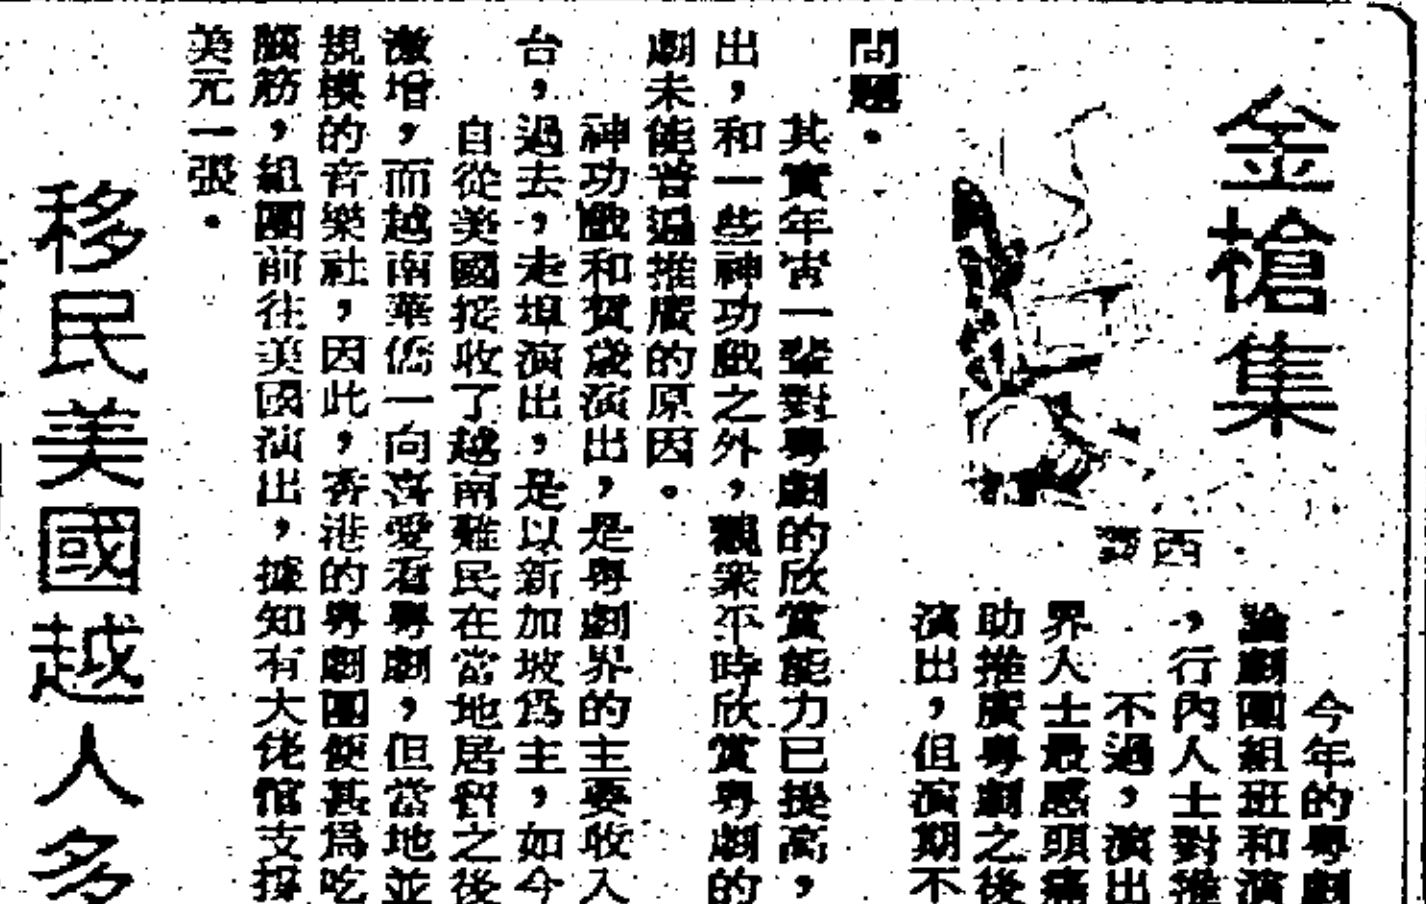 金槍集
西
今年的粵劇
論劇團組班和演
，行內人士對推
不過，演出
界人士最感頭痛
助推廣粵劇之後
演出，但演期不
問題。
其實年靑一輩對粵劇的欣賞能力已提高，
出，和一些神功戲之外，觀衆平時欣賞粵劇的
劇未能普遍推廣的原因。
神功戲和賀歲演出，是粵劇界的主要收入
台，過去，走埠演出，是以新加坡爲主，如今
自從美國接收了越南難民在當地居留之後
激增，而越南華僑一向喜愛看粵劇，但當地並
規模的音樂社，因此，香港的粵劇團便甚爲吃
腦筋，組團前往美國演出，據知有大佬倌支採
美元一張。
移民美國越人多